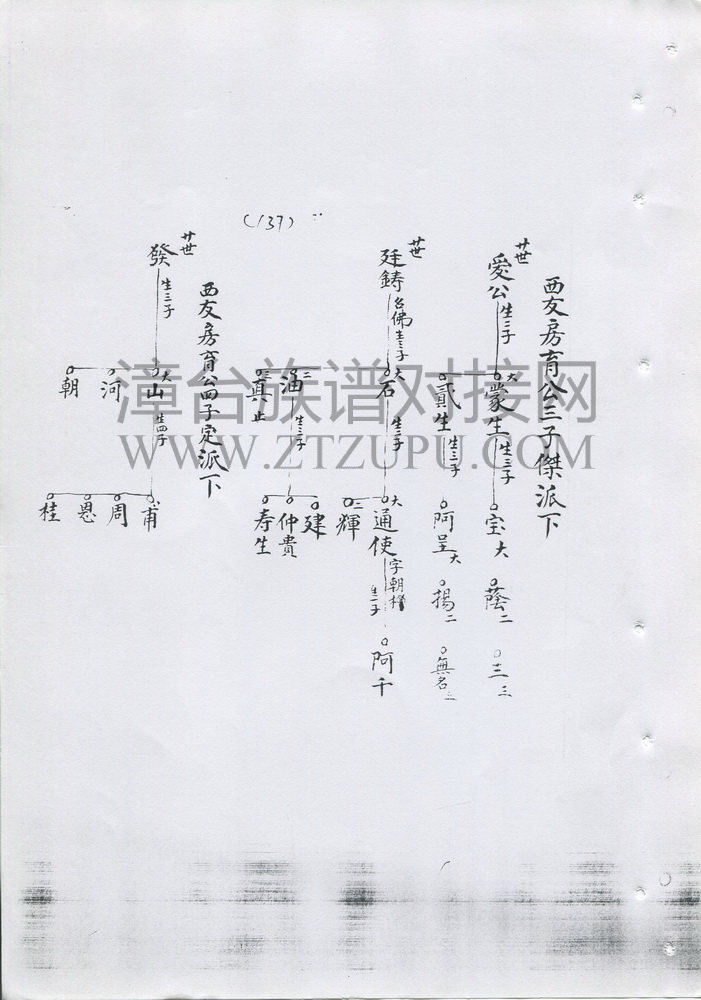 (137)
西友房育公三子傑派下
廿世
愛公
生三子
大
蒙生
生三子
宝 大
蔭 二
三 三
貳生
生三子
阿呈 大
揚 二
無名 三
廿世
廷鑄
名佛
生三子
大
石
生三子
大
通使
字朝
生一子
阿千
二
輝
二
生三子
建
仲貴
寿生
三
真
止
西友房育公四子定派下
廿世
發
生三子
大
山
生四子
甫
周
恩
桂
河
朝
漳台族谱对接网
WWW.ZTZUPU.COM